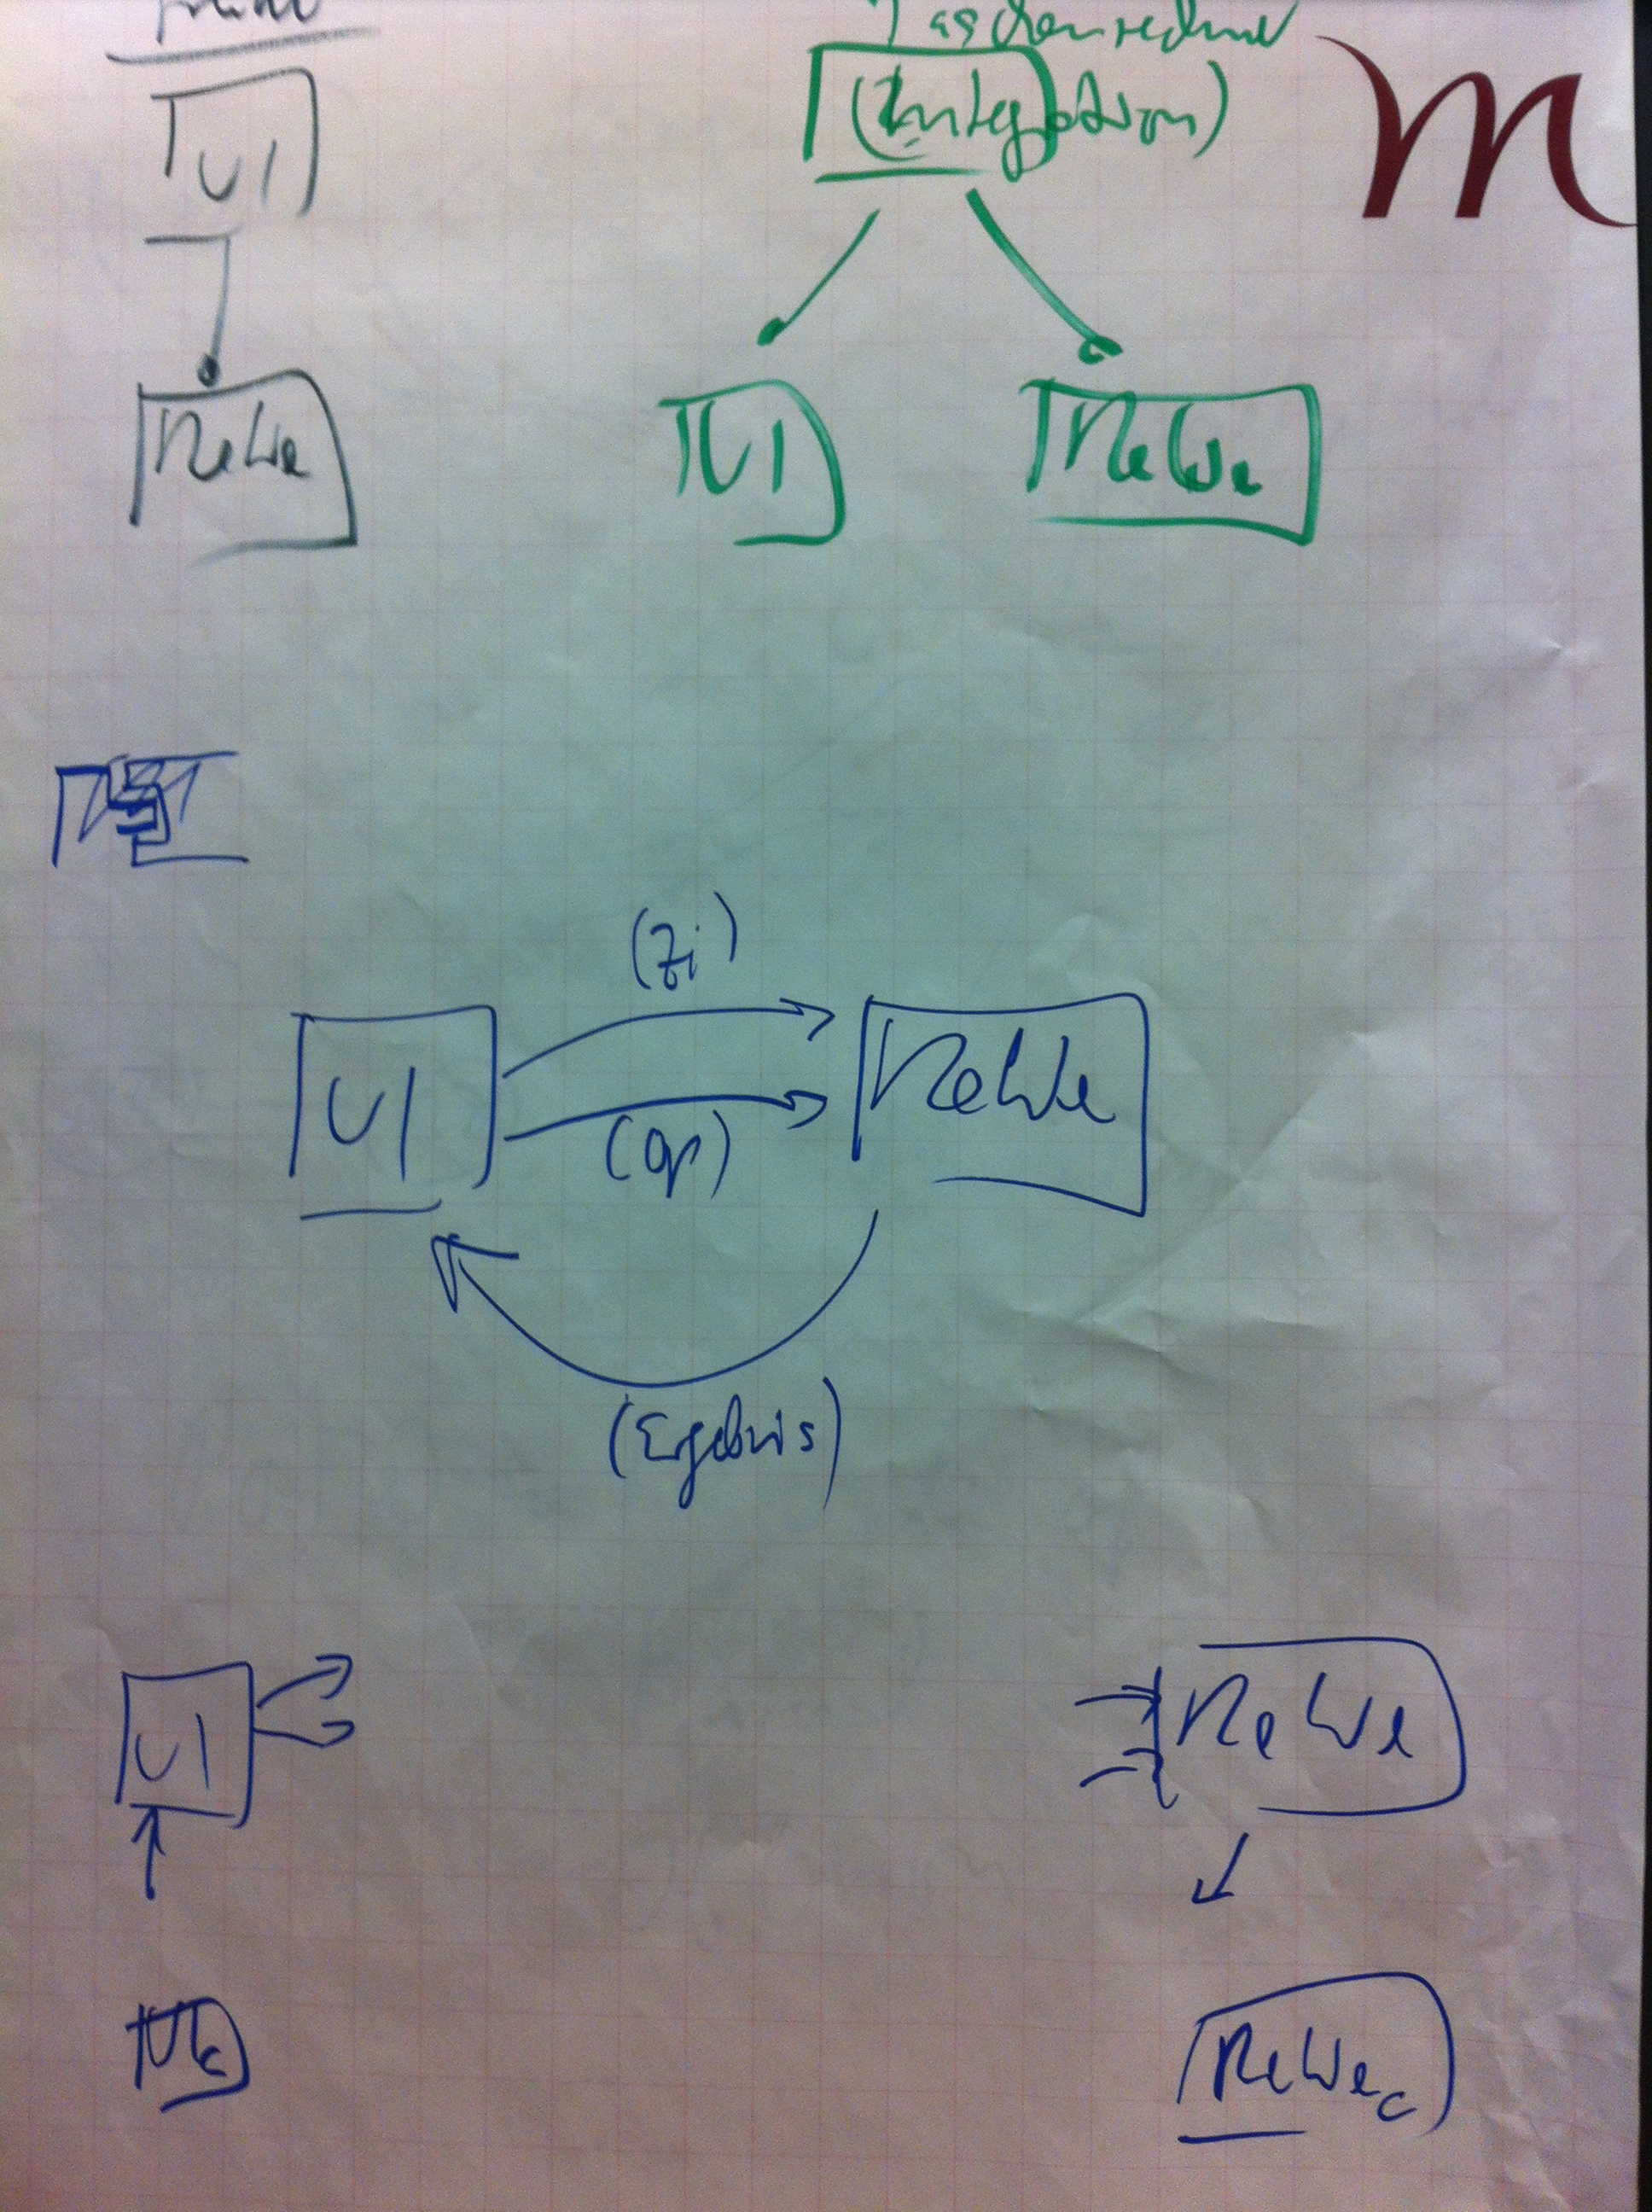 Taschenrechner
(Integration)
m
UI
ReWe
UI
ReWe
(Zi)
UI
ReWe
(Op)
(Ergebnis)
UI
ReWe
UIc
ReWec